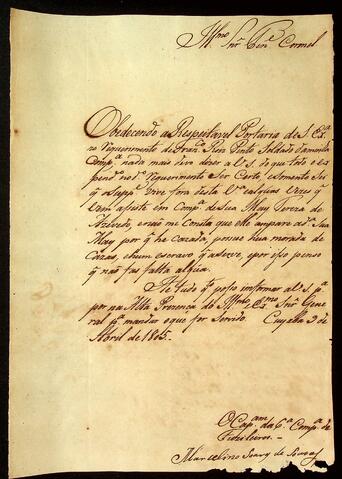 Illmo
Snr Tene Coronel
Obedecendo a Respeitavel Portaria de S. Exa
no Requerimento de Franco Pinto Soldado da minha
Compa nada mais devo dizer a V.S. do que todo o ex
no do Requerimento ser Certo, somente
q o Suppe vive fora desta Va e algũas vezes q
vem asiste em Compa de sua May Tereza de
Azevedo, e não me Consta que elle ampare a da sua
May por q he Cazada, pesue hũa morada de
Cazas, e hum escravo q a serve, e por isso penso
q não fas falta algũa.
He tudo qto posso informar a V.S. pa
por na Alta Prezença do Illmo e Exmo Snr Gene
ral pa mandar o que for Servido. Cuyaba 3 de
Abril de 1805.
O Capam da 6a Compa de
Fuzileiros.
Marcelino